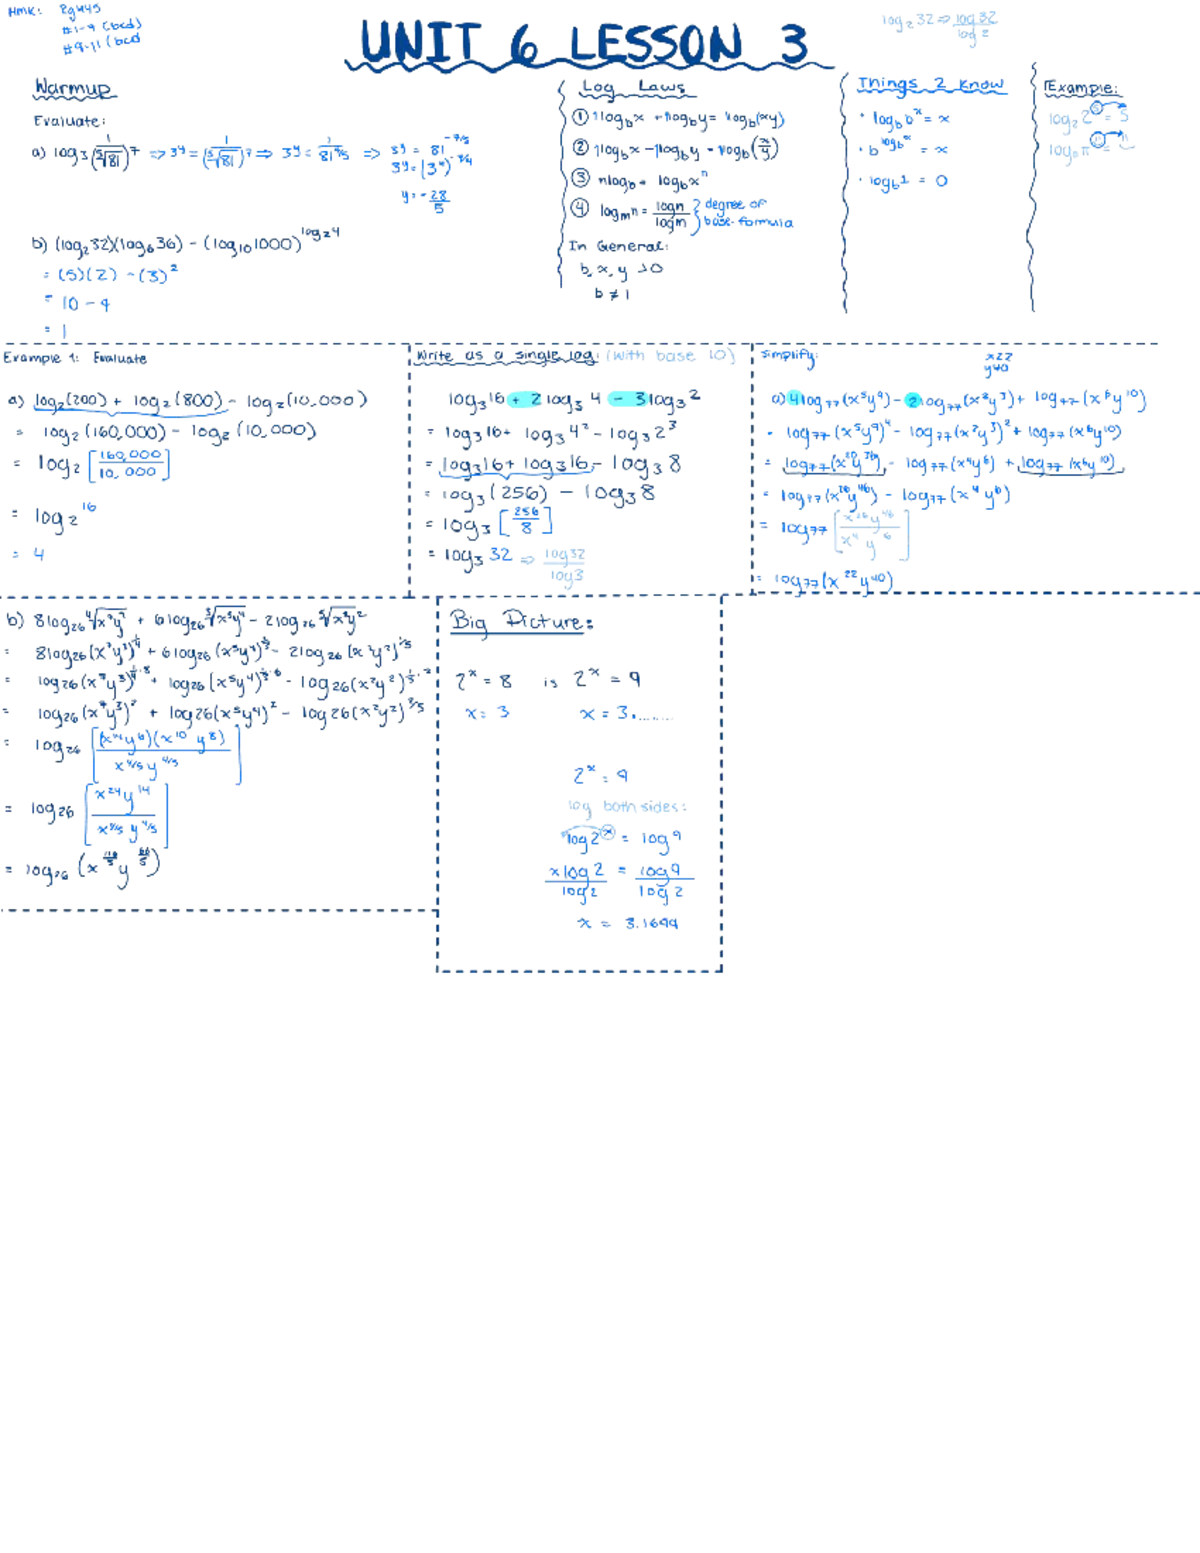 HMK: Pg 445
#1-9 (bcd)
#9-11 (bcd
UNIT 6 LESSON 3
log₂32 ⇒ log32/log2
Warmup
Evaluate:
a) log₃(1/⁵√81)⁷ ⇒ 3^y = (1/⁵√81)⁷ ⇒ 3^y = 1/81^(7/5) ⇒ 3^y = 81^(-7/5)
y = -28/5
b) (log₂32)(log₆36) - (log₁₀1000)^(log₂4)
= (5)(2) - (3)²
= 10 - 9
= 1
Log Laws
① 1log_b x + 1log_b y = 1log_b(xy)
② 1log_b x - 1log_b y = 1log_b(x/y)
③ nlog_b = log_b xⁿ
④ log_m n = logn/logm } degree of base formula
In General:
b, x, y > 0
b ≠ 1
Things 2 Know
· log_b b^x = x
· b^(log_b x) = x
· log_b 1 = 0
Example:
log₂2⁵ = 5
Example 1: Evaluate
a) log₂(200) + log₂(800) - log₂(10,000)
= log₂(160,000) - log₂(10,000)
= log₂[160,000/10,000]
= log₂16
= 4
Write as a single log: (with base 10)
log₃16 + 2log₃4 - 3log₃2
= log₃16 + log₃4² - log₃2³
= log₃16 + log₃16 - log₃8
= log₃(256) - log₃8
= log₃[256/8]
= log₃32 ⇒ log32/log3
Simplify:
x22
y40
a) 4log₇₇(x⁵y⁹) - 2log₇₇(x²y³) + log₇₇(x⁶y¹⁰)
= log₇₇(x⁵y⁹)⁴ - log₇₇(x²y³)² + log₇₇(x⁶y¹⁰)
= log₇₇(x²⁰y³⁶) - log₇₇(x⁴y⁶) + log₇₇(x⁶y¹⁰)
= log₇₇(x²⁶y⁴⁶) - log₇₇(x⁴y⁶)
= log₇₇[x²⁶y⁴⁶/x⁴y⁶]
= log₇₇(x²²y⁴⁰)
b) 8log₂₆⁴√x⁷y³ + 6log₂₆³√x⁵y⁴ - 2log₂₆⁵√x²y²
= 8log₂₆(x⁷y³)^(1/4) + 6log₂₆(x⁵y⁴)^(1/3) - 2log₂₆(x²y²)^(1/5)
= log₂₆(x⁷y³)^(1/4·8) + log₂₆(x⁵y⁴)^(1/3·6) - log₂₆(x²y²)^(1/5·2)
= log₂₆(x⁷y³)² + log₂₆(x⁵y⁴)² - log₂₆(x²y²)^(2/5)
= log₂₆[(x¹⁴y⁶)(x¹⁰y⁸)/x^(4/5)y^(4/5)]
= log₂₆[x²⁴y¹⁴/x^(4/5)y^(4/5)]
= log₂₆(x^(116/5)y^(66/5))
Big Picture:
2^x = 8 is 2^x = 9
x = 3 x = 3.........
2^x = 9
log both sides:
log2^x = log9
xlog2/log2 = log9/log2
x = 3.1699